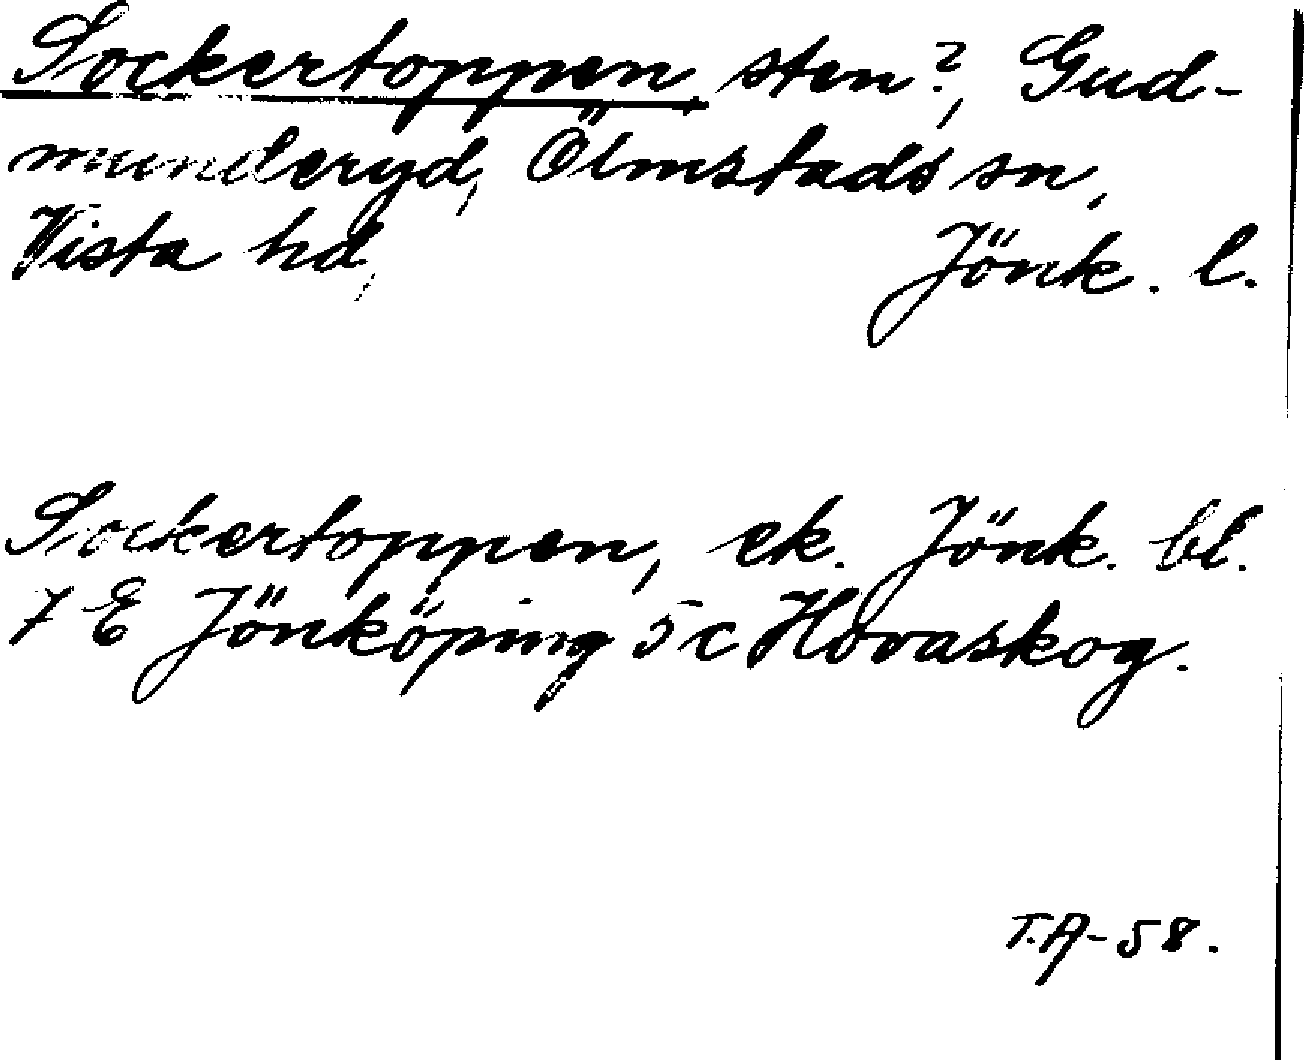 Sockertoppen, sten?, Gud-
munderyd, Ölmstads sn,
Vista hd, Jönk. l.
Sockertoppen, ek. Jönk. bl.
7 E Jönköping 5 c Hovaskog.
T.A-58.